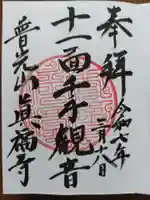 奉拜
令和六年
二月十八日
十一面千手観音
普光山真福寺